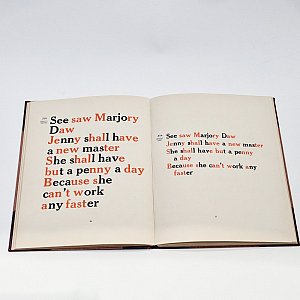 See saw Marjory
Daw
Jenny shall have
a new master
She shall have
but a penny a day
Because she
can't work
any faster
See saw Marjory Daw
Jenny shall have a new master
She shall have but a penny
a day
Because she can't work any
faster